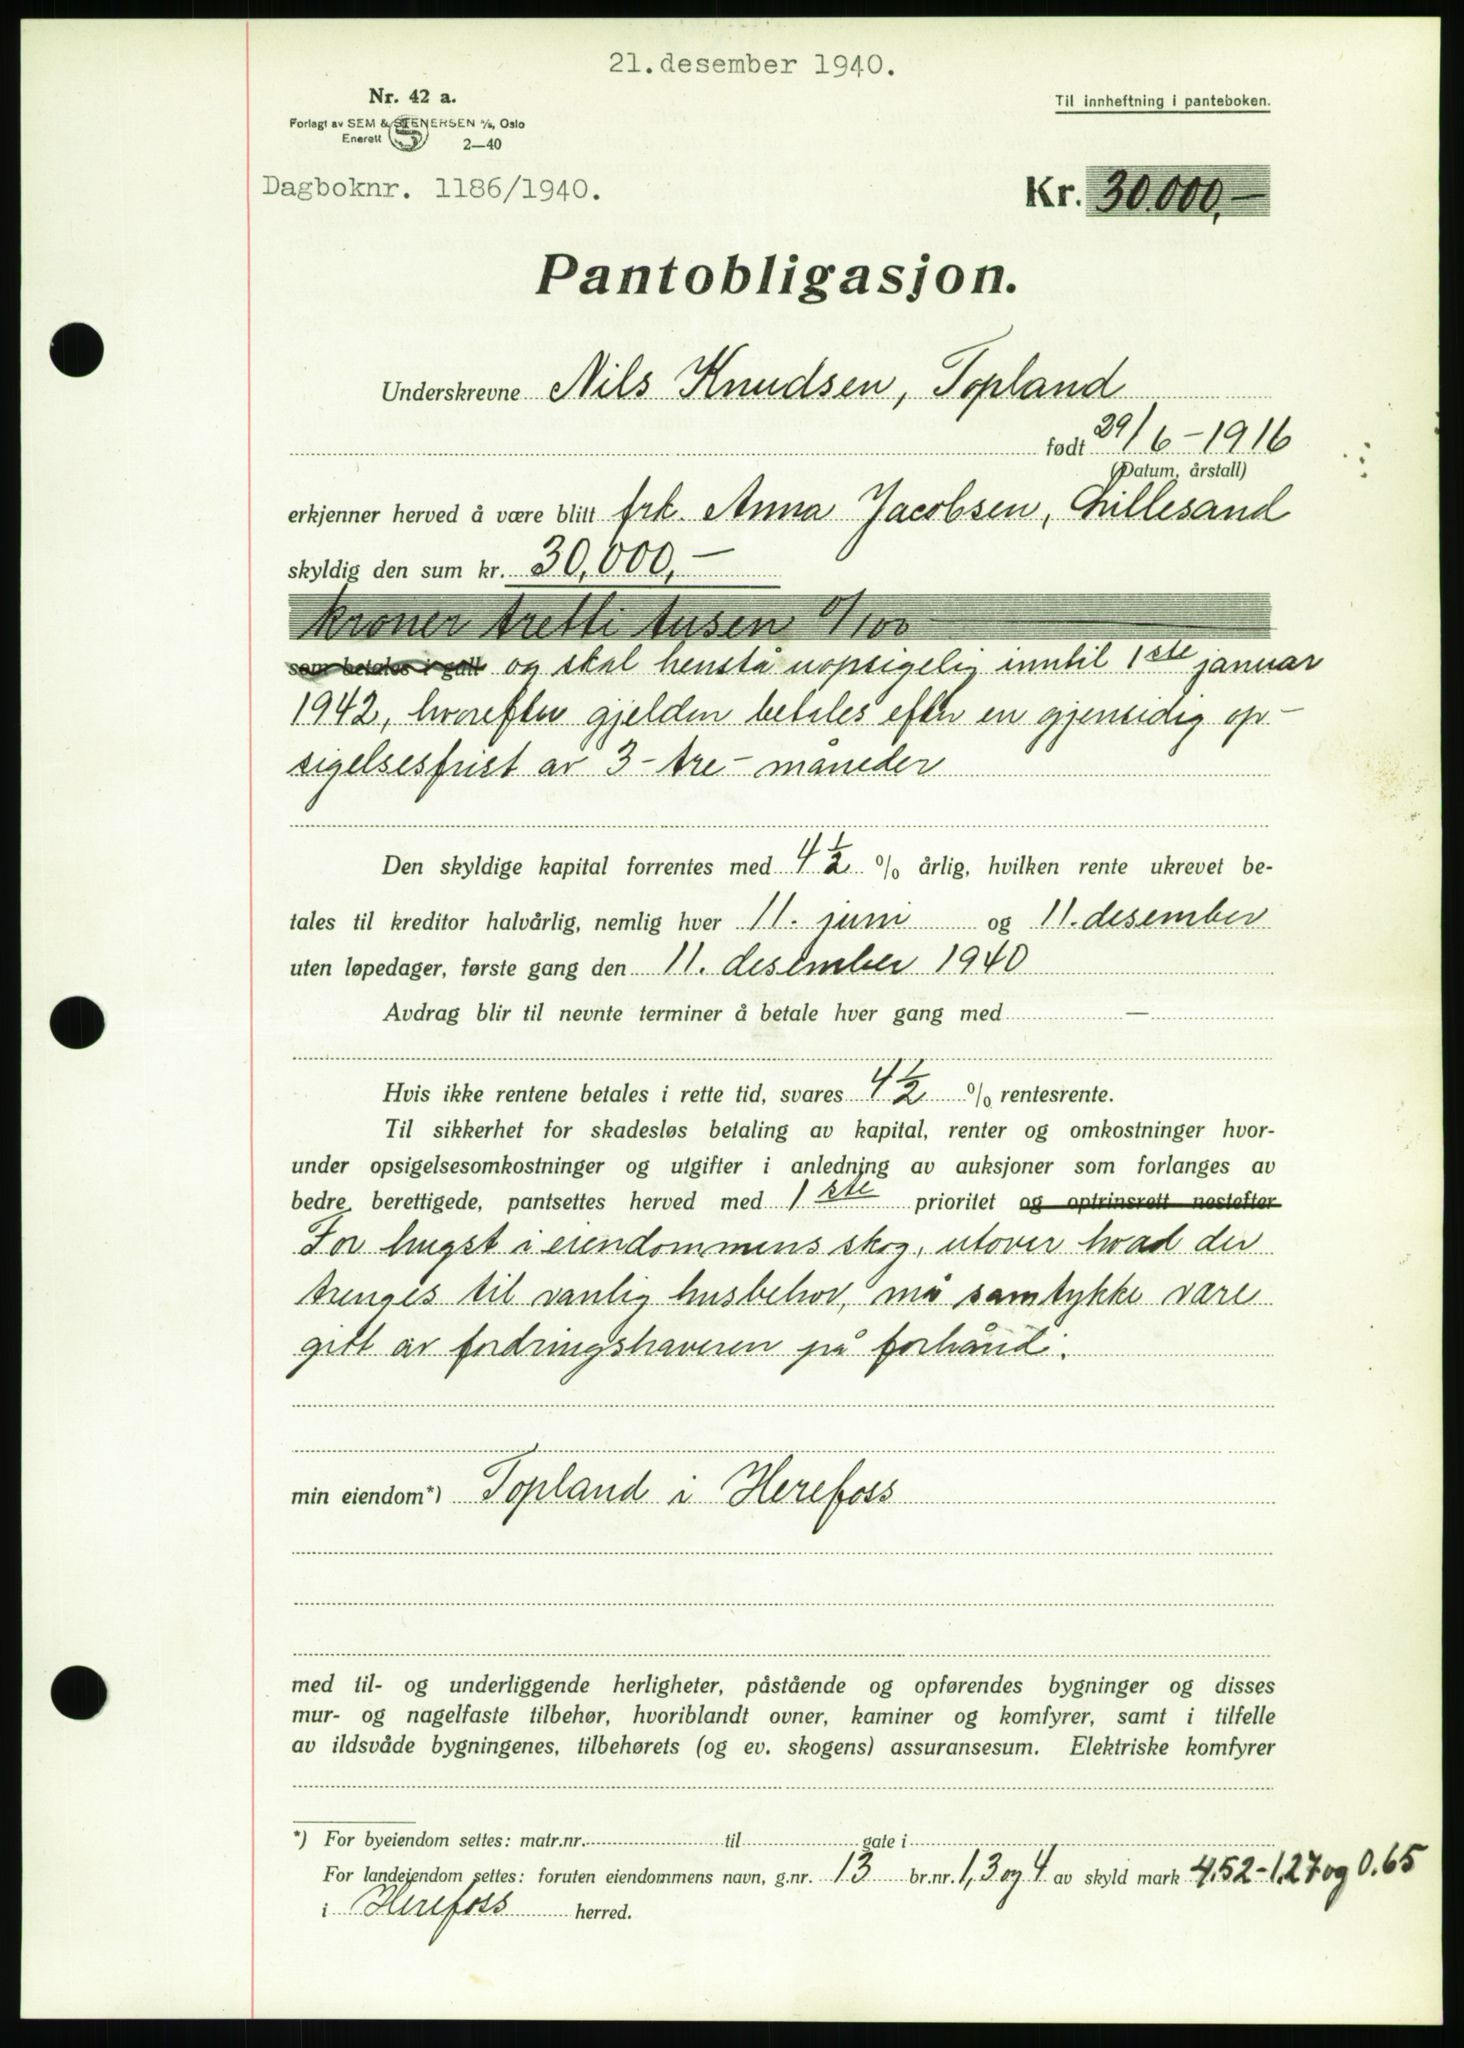 21.desember 1940.
Nr. 42 a.
Til innheftning i panteboken.
Forlagt av SEM & STENERSEN A/S, Oslo
Enerett
2—40
Dagboknr. 1186/1940.
Kr. 30.000,—
Pantobligasjon.
Underskrevne Nils Knudsen, Topland
født 29/6-1916
(Datum, årstall)
erkjenner herved å være blitt frk. Anna Jacobsen, Lillesand
skyldig den sum kr. 30,000,—
kroner tretti tusen 0/100
som betales i gull og skal henstå uopsigelig inntil 1ste januar
1942, hvorefter gjelden betales efter en gjensidig op-
sigelsesfrist av 3-tre- måneder
Den skyldige kapital forrentes med 4½ % årlig, hvilken rente ukrevet be-
tales til kreditor halvårlig, nemlig hver 11. juni og 11. desember
uten løpedager, første gang den 11. desember 1940
Avdrag blir til nevnte terminer å betale hver gang med —
Hvis ikke rentene betales i rette tid, svares 4½ % rentesrente.
Til sikkerhet for skadesløs betaling av kapital, renter og omkostninger hvor-
under opsigelsesomkostninger og utgifter i anledning av auksjoner som forlanges av
bedre berettigede, pantsettes herved med 1ste prioritet og optrinsrett nestefter
For hugst i eiendommens skog, utover hvad der
trenges til vanlig husbehov, må samtykke være
gitt av fordringshaveren på forhånd.
min eiendom*) Topland i Herefoss
med til- og underliggende herligheter, påstående og opførendes bygninger og disses
mur- og nagelfaste tilbehør, hvoriblandt ovner, kaminer og komfyrer, samt i tilfelle
av ildsvåde bygningenes, tilbehørets (og ev. skogens) assuransesum. Elektriske komfyrer
*) For byeiendom settes: matr.nr. til gate i
For landeiendom settes: foruten eiendommens navn, g.nr. 13 br.nr. 1, 3 og 4 av skyld mark 4.52-1.27 og 0.65
i Herefoss herred.